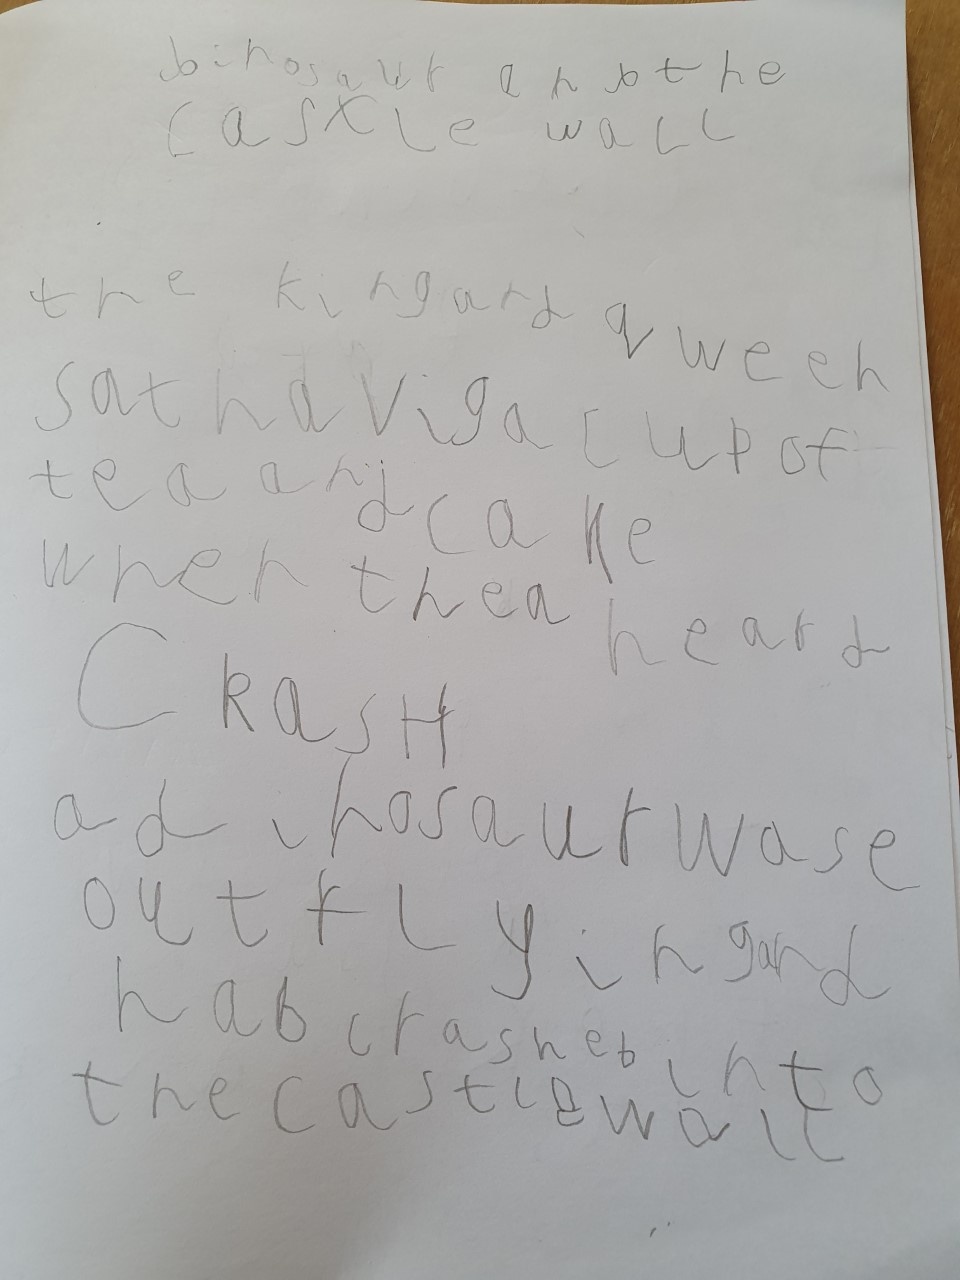 binosaur anb the
castle wall
the king and qween
sat haviga cup of
tea and cake
when thea heard
CRASH
a dinosaur wase
out flying and
hab crasheb into
the castle wall